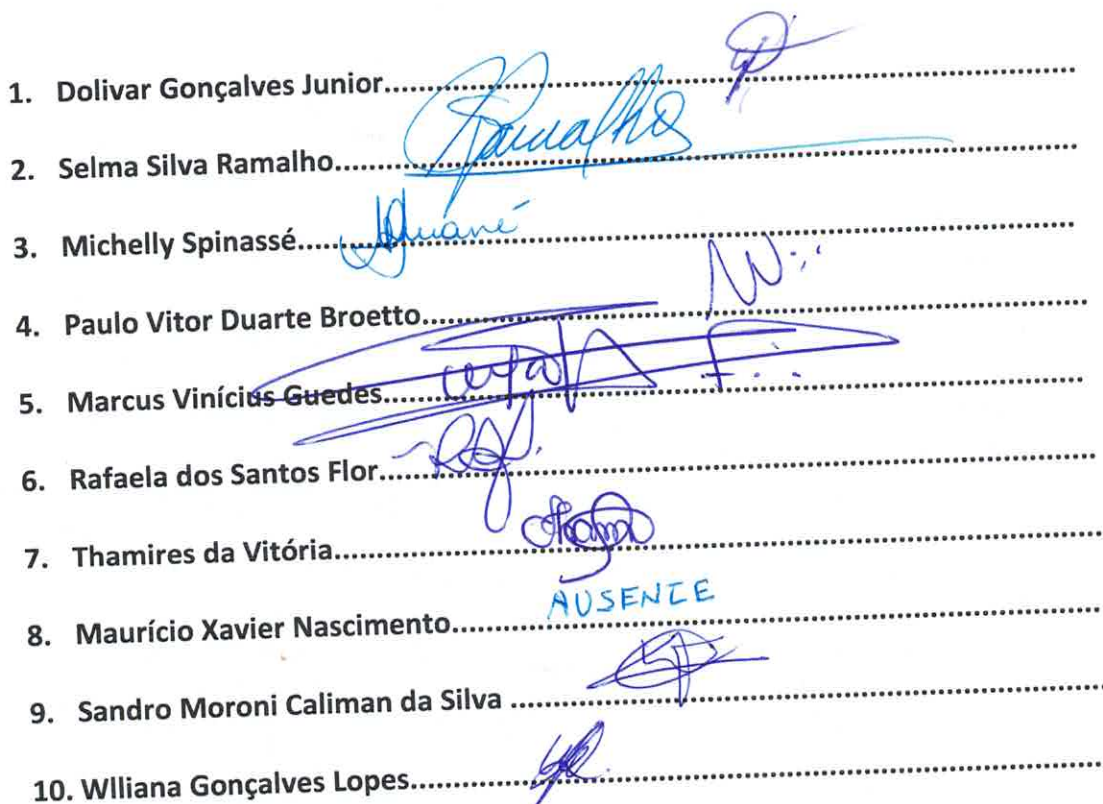 1. Dolivar Gonçalves Junior
2. Selma Silva Ramalho Ramalho
3. Michelly Spinassé
4. Paulo Vitor Duarte Broetto
5. Marcus Vinícius Guedes
6. Rafaela dos Santos Flor
7. Thamires da Vitória
8. Maurício Xavier Nascimento AUSENTE
9. Sandro Moroni Caliman da Silva
10. Wlliana Gonçalves Lopes